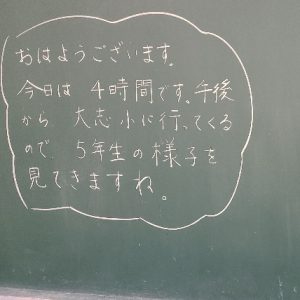 おはようございます。
今日は 4時間です。午後
から 大志小に行ってくる
ので 5年生の様子を
見てきますね。